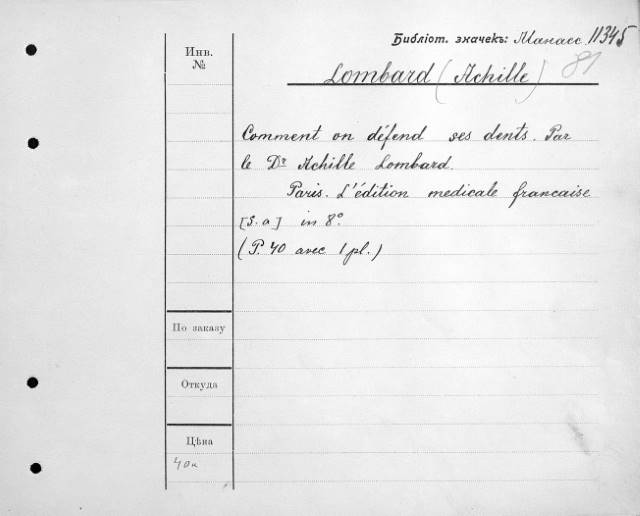 Библіот. значекъ: Манасс. 11345
81
Инв.
№
Lombard (Achille)
Comment on défend ses dents. Par
le Dr Achille Lombard.
Paris. L'édition medicale francaise
[S.a] in 8º
(P. 40 avec 1 pl.)
По заказу
Откуда
Цѣна
40к